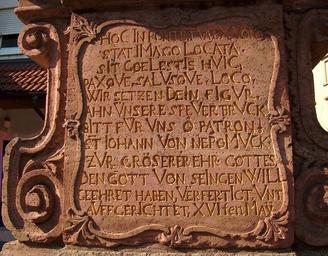 HOC IN PONTE
STAT IMAGO LOCATA
SIT COELESTIS HVIC
PAXQVE, SALVSQVE, LOCO,
WIR SETZEN DEIN FIGVR
AHN VNSERE
BITT FVR VNS O PATRON
ST IOHANN VON NEPOMVCK
ZVR GRÖSERER EHR GOTTES
DEN GOTT VON SEINGEN WILL
GEEHRET HABEN, VERFERTIGT, VNT
AVFFGERICHTET, XVI ten MAY